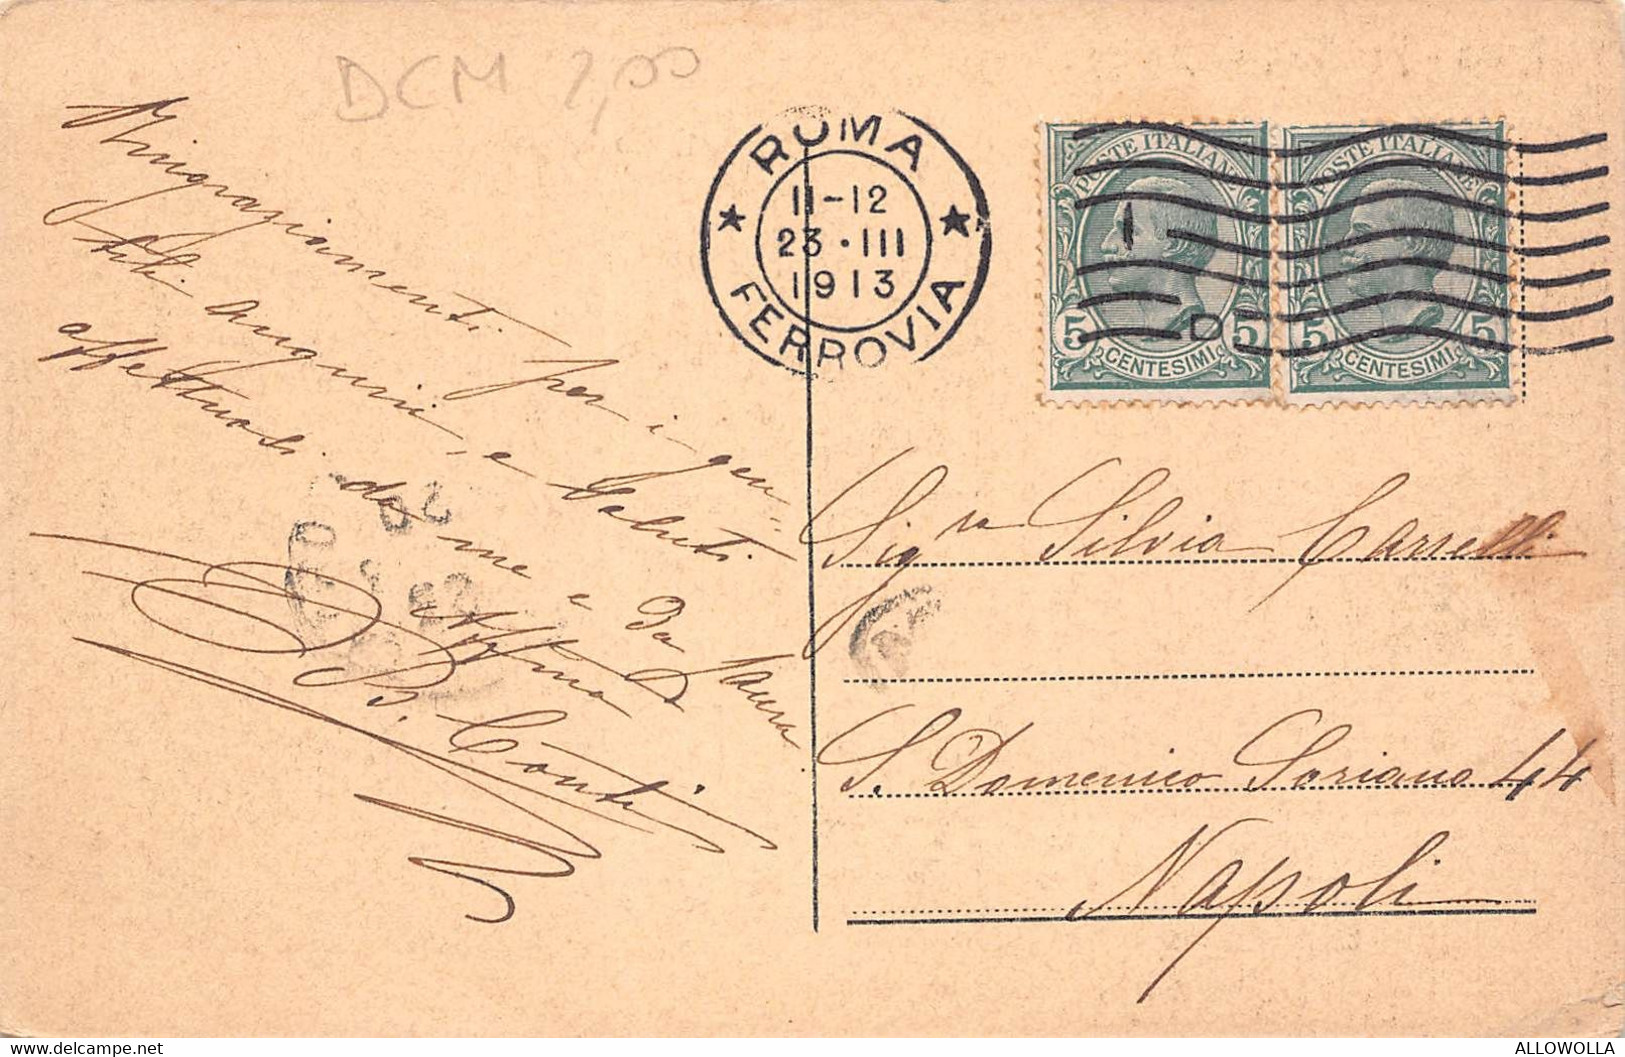 DCM 2,00
Ringraziamenti per i gen-
tili auguri, e saluti
affettuosi da me e da Laura
B. Conti
ROMA
11-12
23 · III
1913
FERROVIA
POSTE ITALIANE
5 CENTESIMI 5
POSTE ITALIANE
5 CENTESIMI 5
Sig.ra Silvia
S. Domenico Soriano 44
Napoli
https://www.delcampe.net
ALLOWOLLA